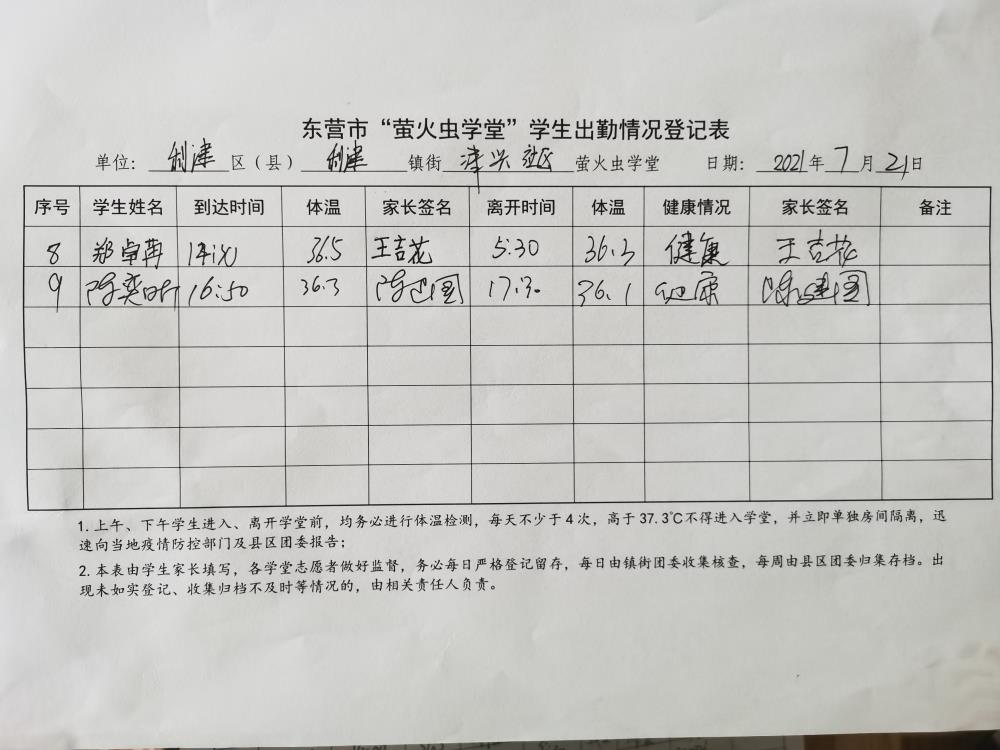 东营市“萤火虫学堂”学生出勤情况登记表
单位： 利津 区（县） 利津 镇街 津兴社区 萤火虫学堂 日期： 2021 年 7 月 21 日
序号 学生姓名 到达时间 体温 家长签名 离开时间 体温 健康情况 家长签名 备注
8 郑卓冉 36.5 王吉花 5:30 36.3 健康 王吉花
9 陈奕 16:50 36.3 陈建国 17:30 36.1 健康 陈建国
1. 上午、下午学生进入、离开学堂前，均务必进行体温检测，每天不少于4次，高于37.3℃不得进入学堂，并立即单独房间隔离，迅
速向当地疫情防控部门及县区团委报告；
2. 本表由学生家长填写，各学堂志愿者做好监督，务必每日严格登记留存，每日由镇街团委收集核查，每周由县区团委归集存档。出
现未如实登记、收集归档不及时等情况的，由相关责任人负责。